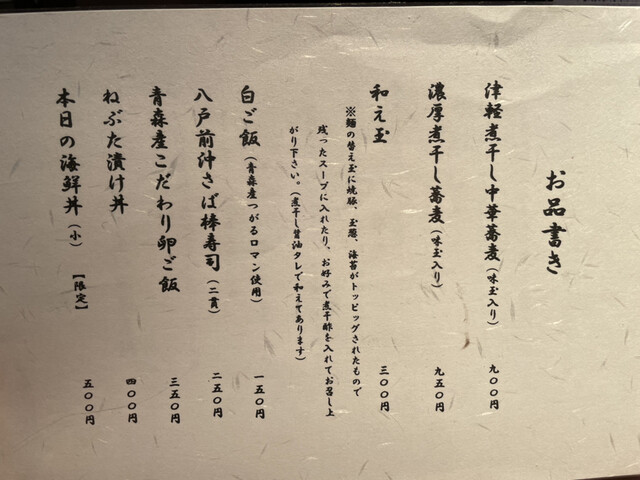 お品書き
津軽煮干し中華蕎麦(味玉入り) 九〇〇円
濃厚煮干し蕎麦(味玉入り) 九五〇円
和え玉 三〇〇円
※麺の替え玉に焼豚、玉葱、海苔がトッピングされたもので
残ったスープに入れたり、お好みで煮干酢を入れてお召し上
がり下さい。(煮干し醤油タレで和えてあります)
白ご飯(青森産つがるロマン使用) 一五〇円
八戸前沖さば棒寿司(二貫) 二五〇円
青森産こだわり卵ご飯 三五〇円
ねぶた漬け丼 四〇〇円
本日の海鮮丼(小)【限定】 五〇〇円